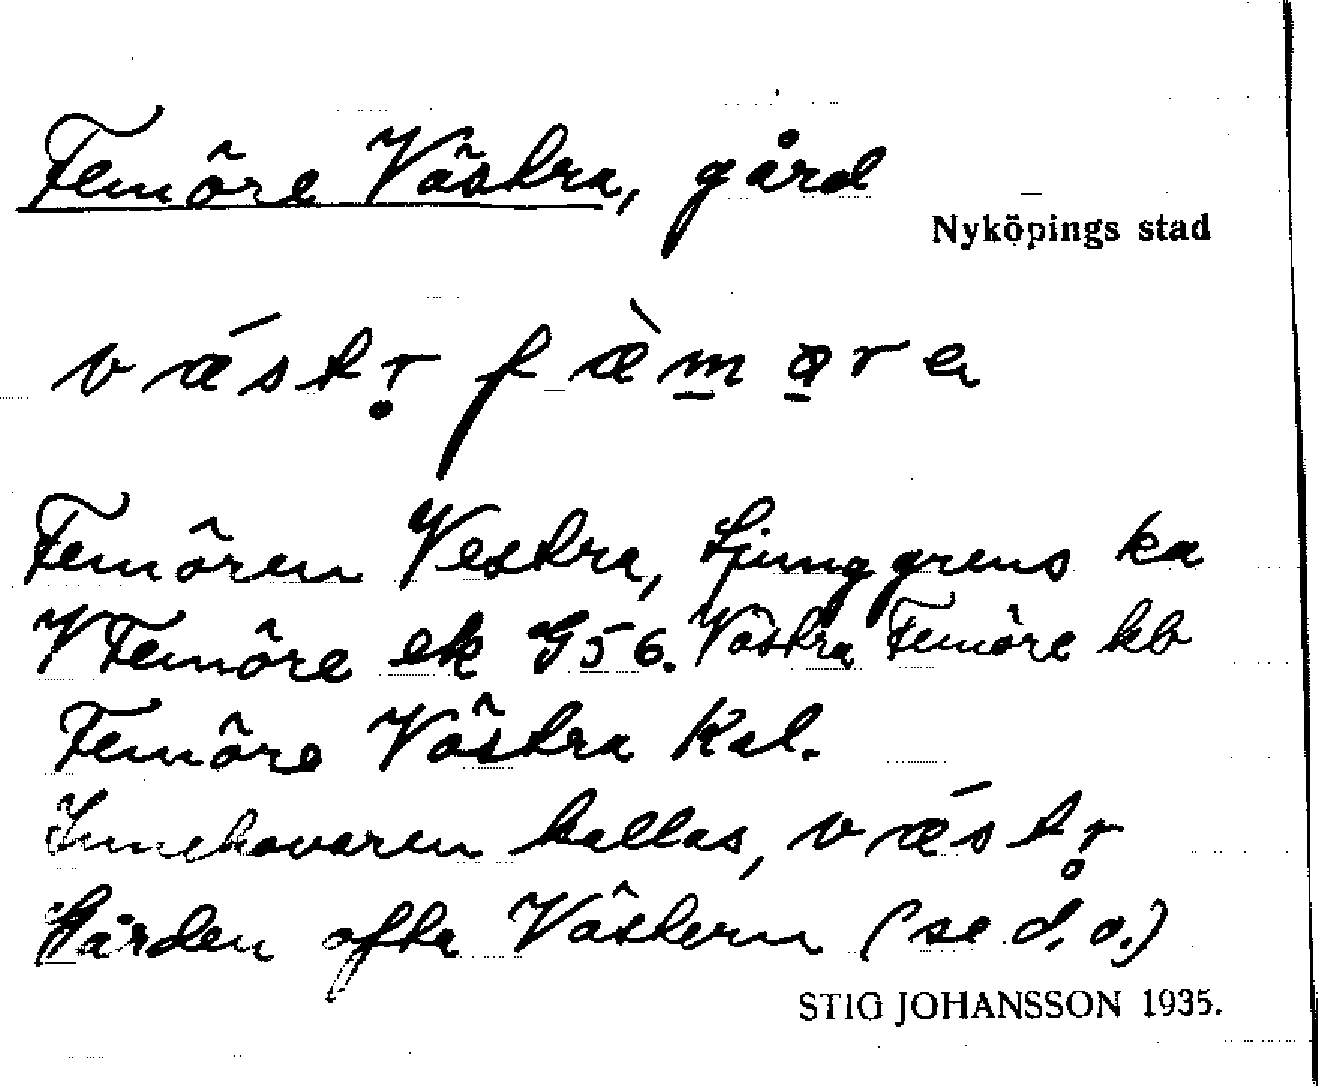 Femöre Västra, gård
Nyköpings stad
væ´str̥ fæ̀m̲o̲re
Femören Vestra, Ljunggrens ka
V Femöre ek G56. Västra Femöre kb
Femöre Västra Kal.
Innehavaren kallas, væ´str̥
Gården ofta Västern (se d. o.)
STIG JOHANSSON 1935.